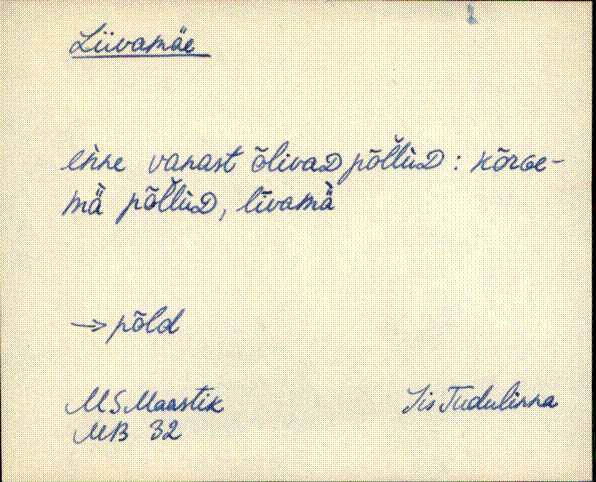 Liivamäe
enne vanast õlivaD põllüD: kõrGe-
mä̀ põllüD, līvamä̀
→ põld
MSMaastik
MB 32
Iis Tudulinna